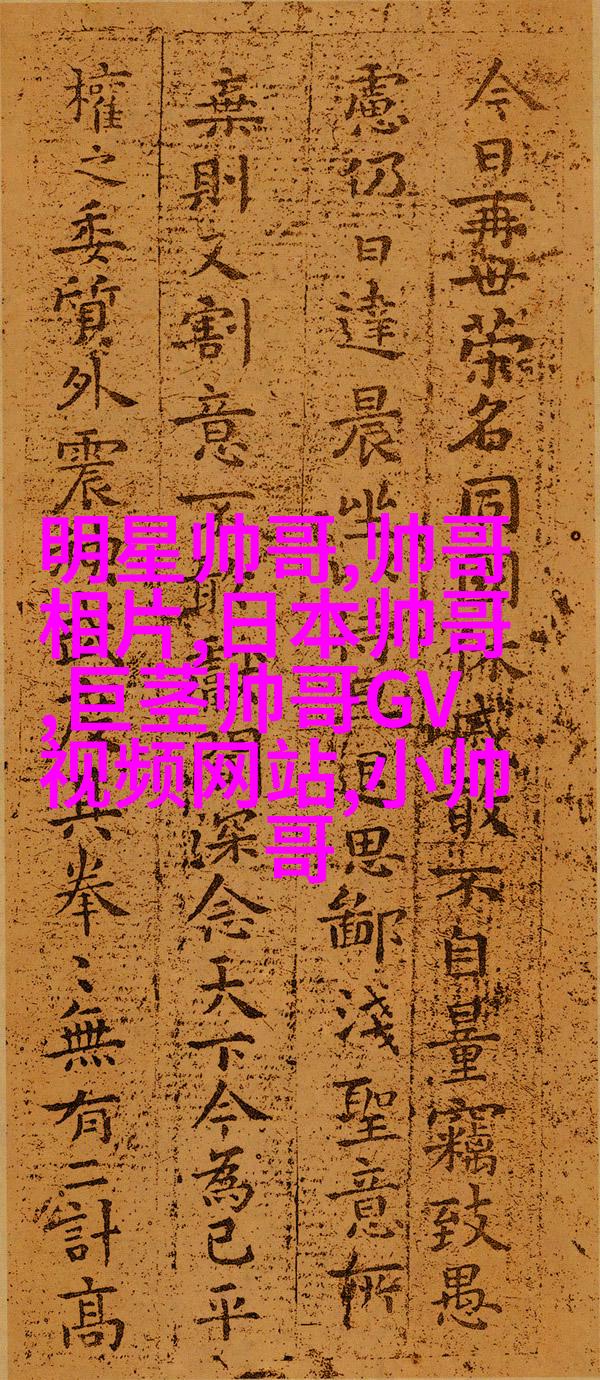 今日再世荣名同國休慼敢不自量竊致愚
慮仍日達晨坐思鄙淺聖意所
棄則又割意不深念天下今為已平
權之委質外震拳〻無有二計高
明星帅哥,帅哥
相片,日本帅哥
,巨茎帅哥GV
视频网站,小帅
哥